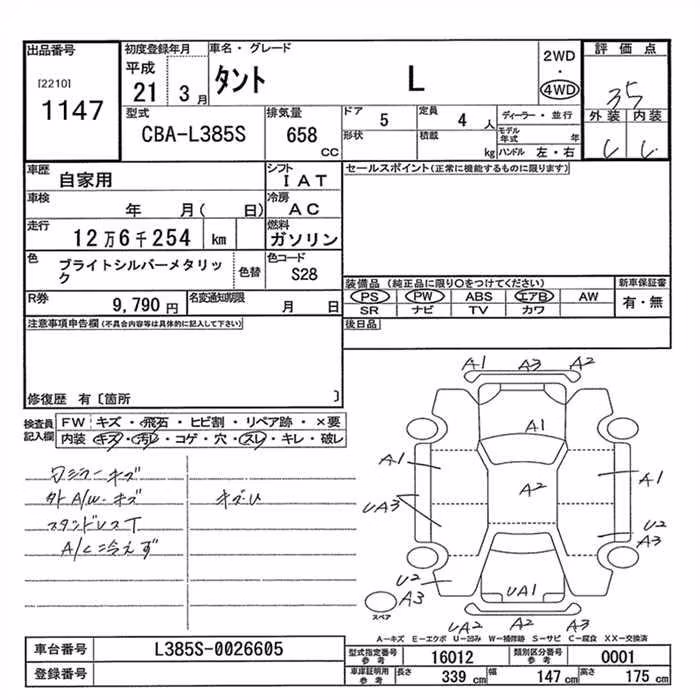 出品番号
[2210]
1147
初度登録年月
平成
21 3月
車名・グレード
タント L
2WD
・
4WD
評価点
35
外装 内装
型式
CBA-L385S
排気量
658
CC
ドア 5
定員 4 人
形状
積載 kg
ディーラー・並行
モデル年式 年
ハンドル 左・右
車歴
自家用
シフト
IAT
車検
年 月( 日)
冷房
AC
走行
12万6千254 km
燃料
ガソリン
色
ブライトシルバーメタリック
色替
色コード
S28
R券
9,790円
名変通知期限
月 日
セールスポイント(正常に機能するものに限ります)
装備品 (純正品に限り○をつけてください)
PS PW ABS エアB AW
SR ナビ TV カワ
新車保証書
有・無
後日品
注意事項申告欄(不具合内容等は具体的に記入して下さい)
修復歴 有〔箇所 〕
検査員記入欄
FW キズ・飛石・ヒビ割・リペア跡・×要
内装 キズ・汚レ・コゲ・穴・スレ・キレ・破レ
外A/W・キズ
スタンドレスT
A/C冷えず
A1 A3 A2
A1
A1
A2
A1
UA3
U2
A3
U2
A3
UA1
UA2 A2 A3
スペア
A-キズ E-エクボ U-凹み W-補修跡 S-サビ C-腐食 XX-交換済
車台番号
L385S-0026605
登録番号
型式指定番号
参考
16012
類別区分番号
参考
0001
車庫証明用
参考
長さ 339 cm
幅 147 cm
高さ 175 cm